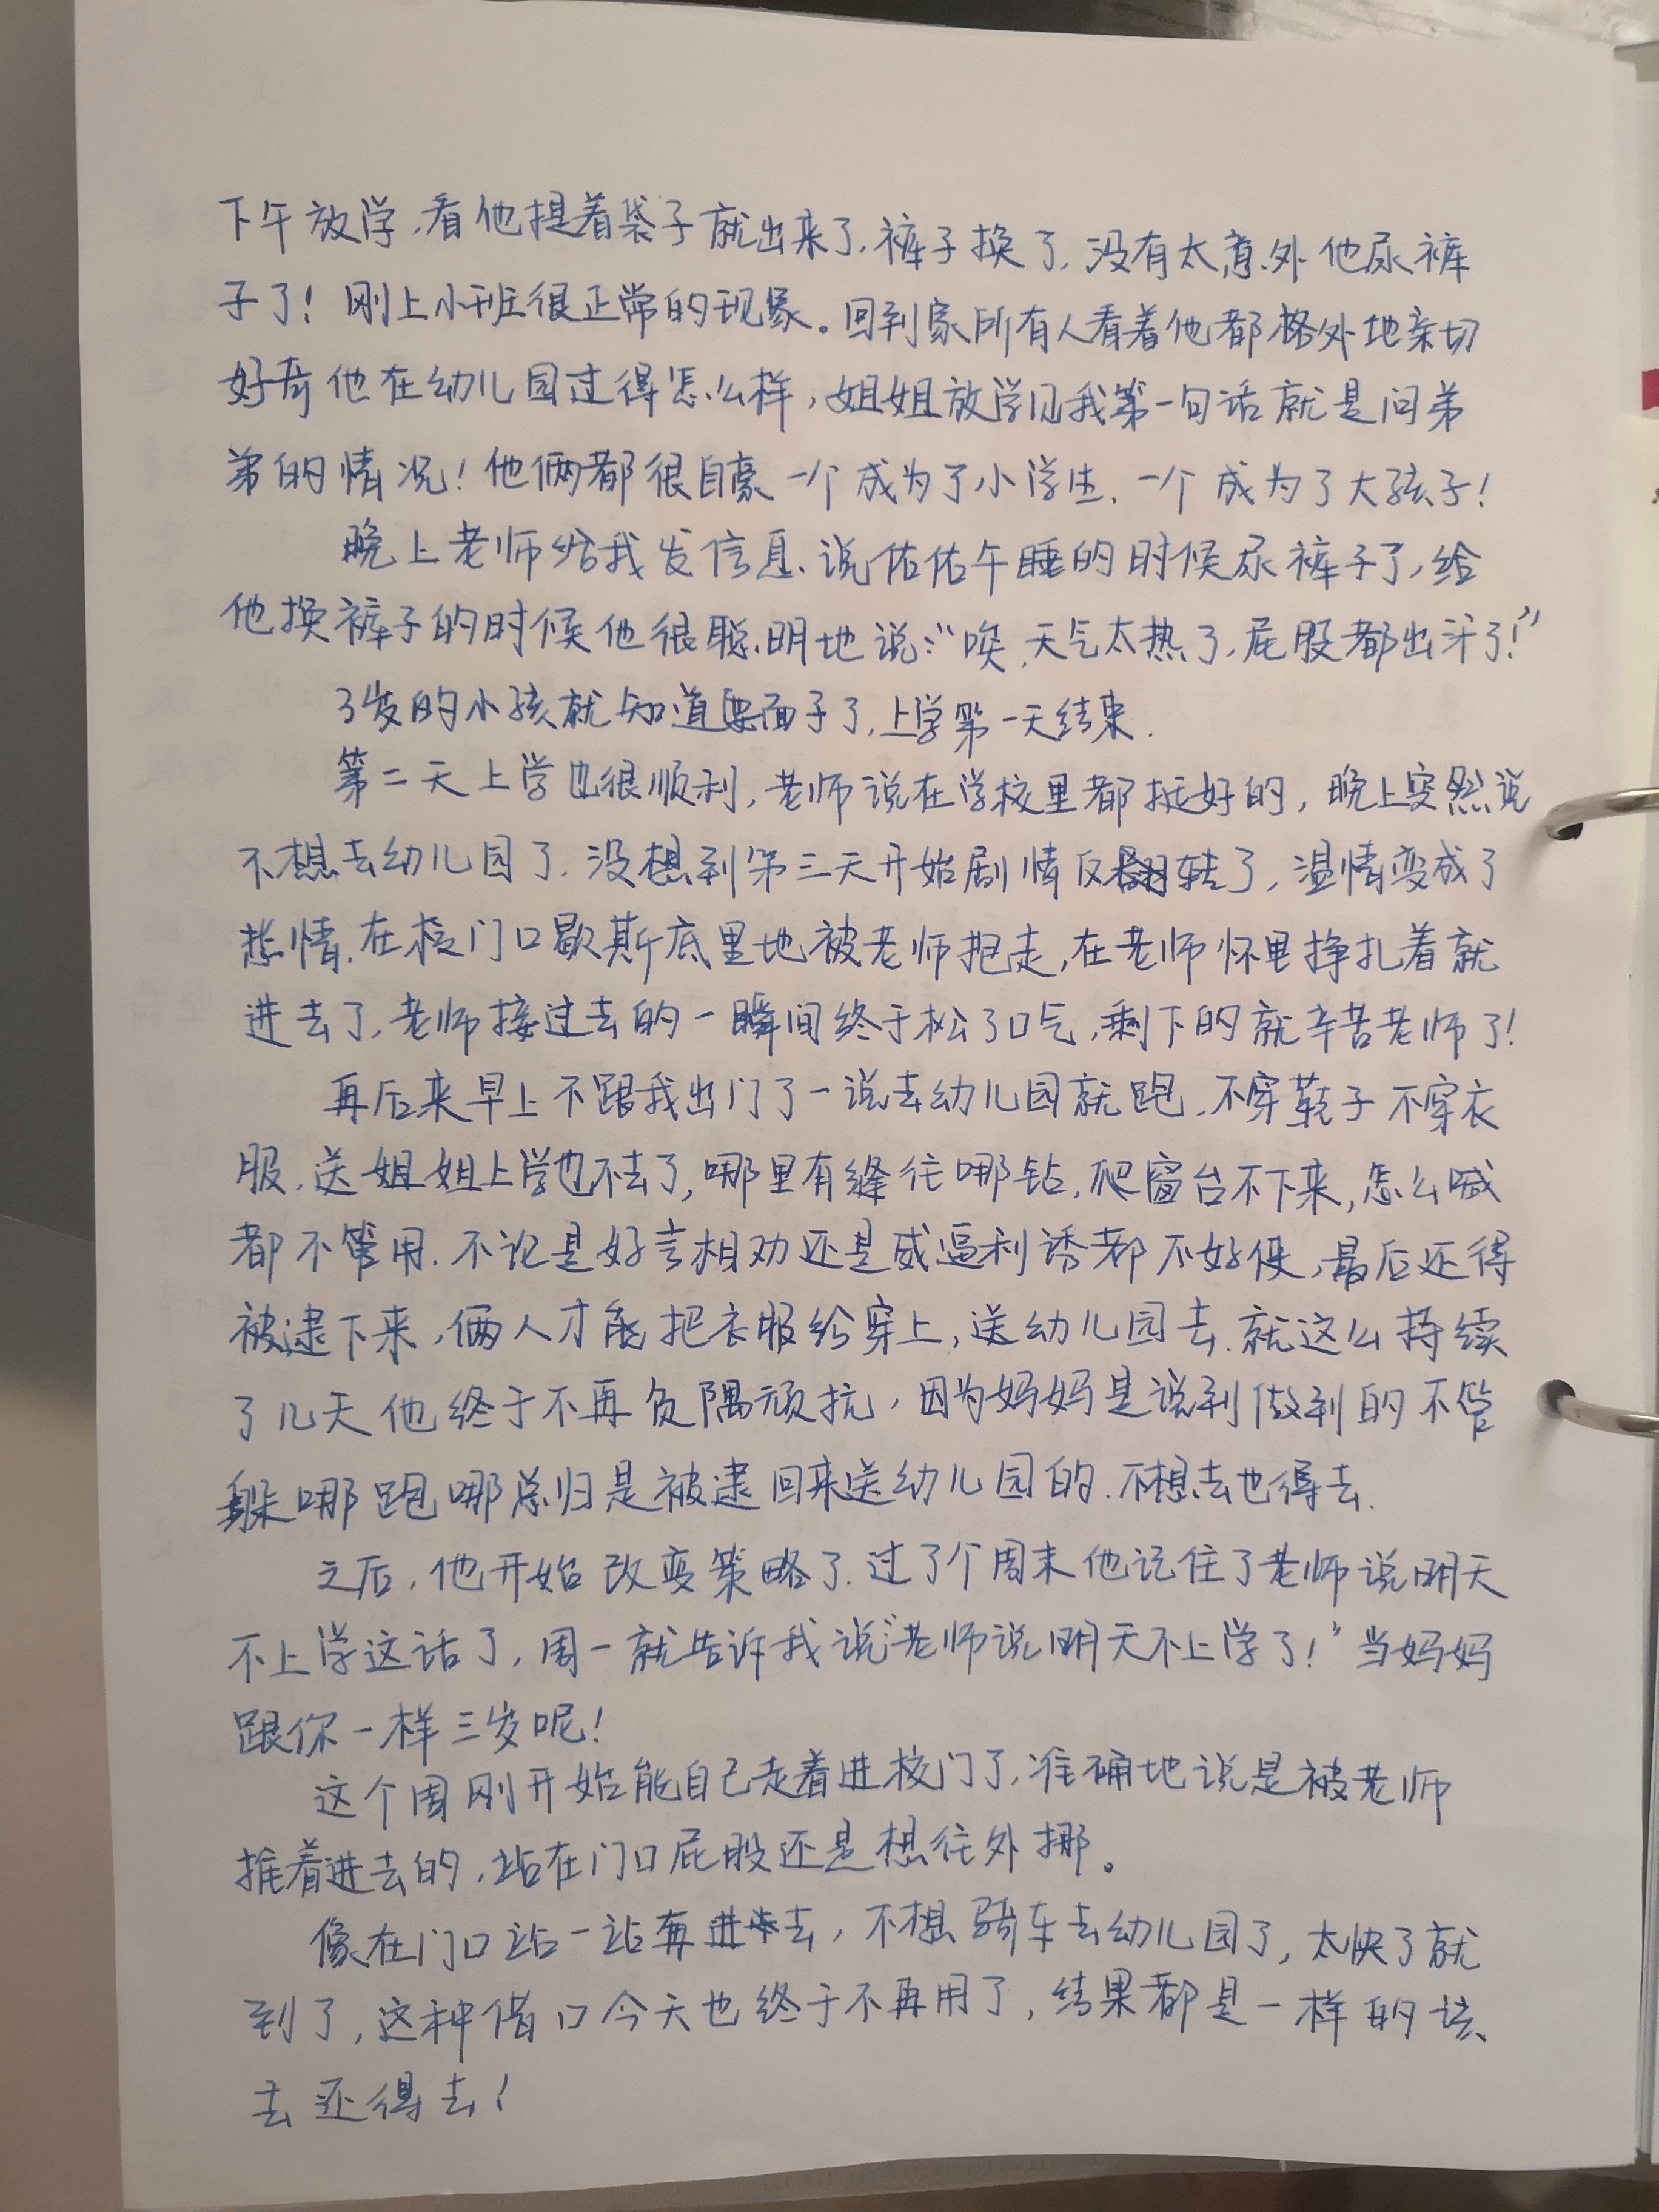 下午放学,看他提着袋子就出来了,裤子换了,没有太意外他尿裤
子了!刚上小班很正常的现象。回到家所有人看着他都格外地亲切
好奇他在幼儿园过得怎么样,姐姐放学见我第一句话就是问弟
弟的情况!他俩都很自豪一个成为了小学生、一个成为了大孩子!
晚上老师给我发信息、说佑佑午睡的时候尿裤子了,给
他换裤子的时候他很聪明地说:“唉,天气太热了,屁股都出汗了!”
3岁的小孩就知道要面子了,上学第一天结束.
第二天上学也很顺利,老师说在学校里都挺好的,晚上突然说
不想去幼儿园了.没想到第三天开始剧情反翻转了,温情变成了
悲情.在校门口歇斯底里地被老师抱走,在老师怀里挣扎着就
进去了,老师接过去的一瞬间终于松了口气,剩下的就辛苦老师了!
再后来早上不跟我出门了一说去幼儿园就跑.不穿鞋子不穿衣
服.送姐姐上学也不去了,哪里有缝往哪钻,爬窗台不下来,怎么喊
都不管用.不论是好言相劝还是威逼利诱都不好使,最后还得
被逮下来,俩人才能把衣服给穿上,送幼儿园去.就这么持续
了几天他终于不再负隅顽抗,因为妈妈是说到做到的不管
躲哪跑哪总归是被逮回来送幼儿园的.不想去也得去.
之后,他开始改变策略了.过了个周末他记住了老师说明天
不上学这话了,周一就告诉我说“老师说明天不上学了!”当妈妈
跟你一样三岁呢!
这个周刚开始能自己走着进校门了,准确地说是被老师
推着进去的,站在门口屁股还是想往外挪。
像在门口站一站再进去,不想骑车去幼儿园了,太快了就
到了,这种借口今天也终于不再用了,结果都是一样的该
去还得去!